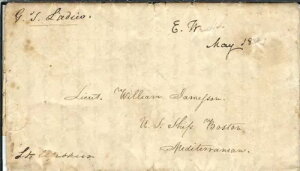 G. T. Ladico.
E. W
May 18
Lieut. William Jameson.
U. S. Ship Boston,
Mediterranean.